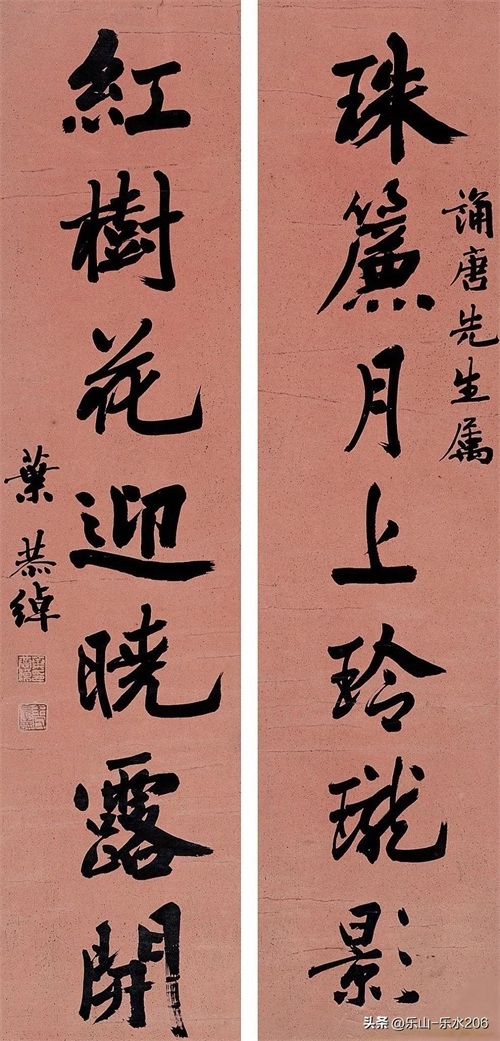 誦唐先生属
珠簾月上玲瓏影
紅樹花迎曉露開
葉恭綽
头条 @乐山-乐水206